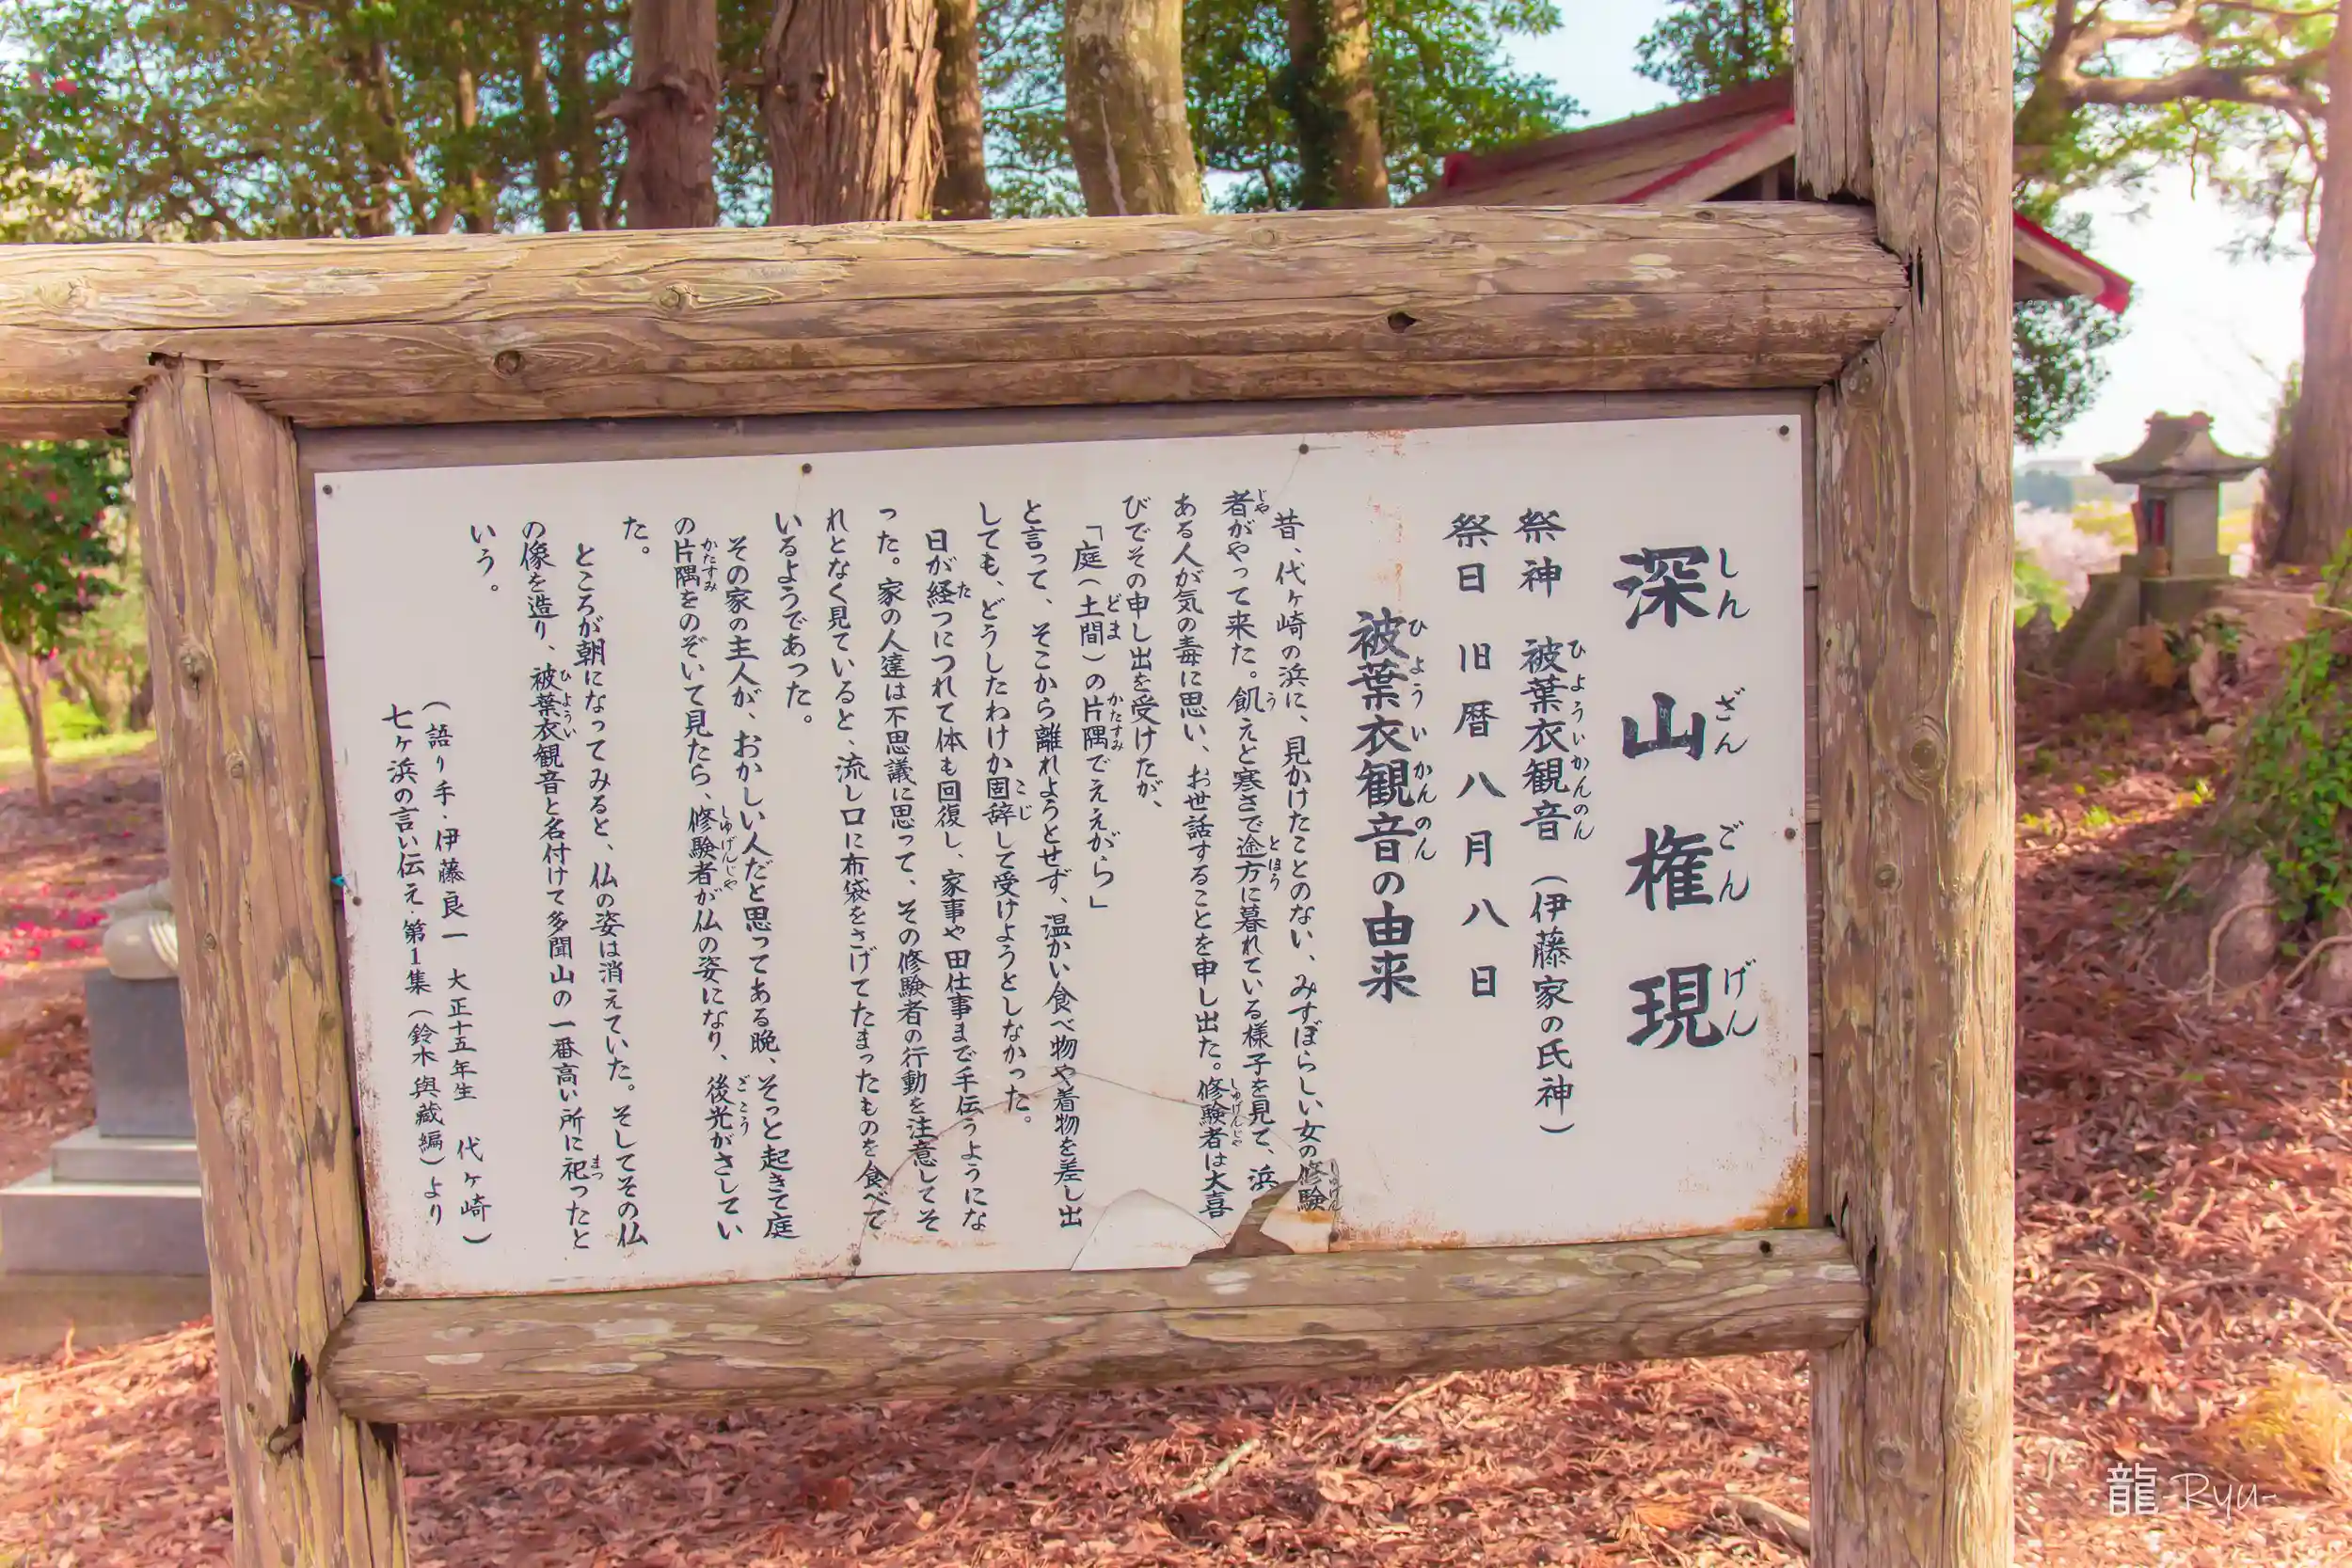 深山権現
しんざんごんげん
祭神 被葉衣観音(伊藤家の氏神)
ひよういかんのん
祭日 旧暦八月八日
被葉衣観音の由来
ひよういかんのん
昔、代ヶ崎の浜に、見かけたことのない、みすぼらしい女の修験
しゅげん
者がやって来た。飢えと寒さで途方に暮れている様子を見て、浜
じや う とほう
ある人が気の毒に思い、お世話することを申し出た。修験者は大喜
しゅげんじゃ
びでその申し出を受けたが、
「庭(土間)の片隅でええがら」
どま かたすみ
と言って、そこから離れようとせず、温かい食べ物や着物を差し出
しても、どうしたわけか固辞して受けようとしなかった。
こじ
日が経つにつれて体も回復し、家事や田仕事まで手伝うようにな
た
った。家の人達は不思議に思って、その修験者の行動を注意してそ
れとなく見ていると、流し口に布袋をさげてたまったものを食べて
いるようであった。
その家の主人が、おかしい人だと思ってある晩、そっと起きて庭
の片隅をのぞいて見たら、修験者が仏の姿になり、後光がさしてい
かたすみ しゅげんじゃ ごこう
た。
ところが朝になってみると、仏の姿は消えていた。そしてその仏
の像を造り、被葉衣観音と名付けて多聞山の一番高い所に祀ったと
ひようい まつ
いう。
(語り手・伊藤良一 大正十五年生 代ヶ崎)
七ヶ浜の言い伝え・第1集(鈴木與蔵編)より
龍-Ryu-